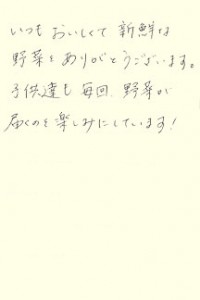 いつも おいしくて 新鮮な
野菜を ありがとうございます。
子供達も 毎回 野菜が
届くのを 楽しみにしています!